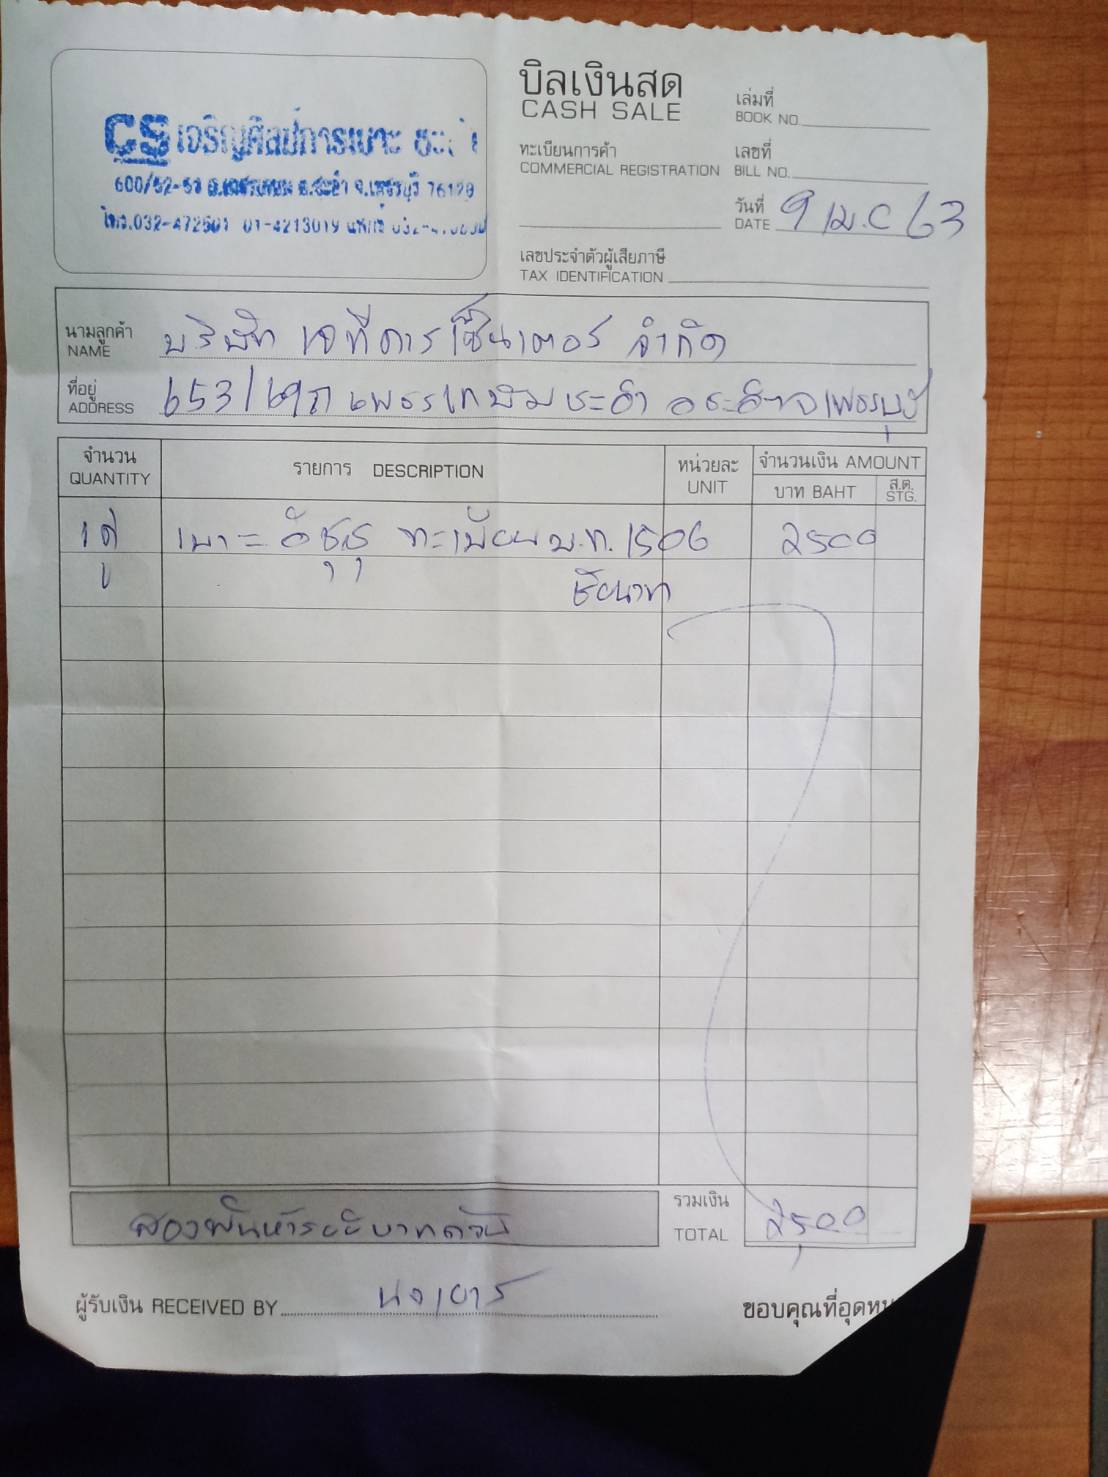 บิลเงินสด
CASH SALE
เล่มที่
BOOK NO.
ทะเบียนการค้า
COMMERCIAL REGISTRATION
เลขที่
BILL NO.
วันที่
DATE 9 เม.ย 63
เลขประจำตัวผู้เสียภาษี
TAX IDENTIFICATION
CS เจริญศิลป์การเบาะ
600/52-53 จ.เพชรบุรี
โทร.032-472501 01-4213019
นามลูกค้า
NAME บริษัท เจทีคาร์เซ็นเตอร์ จำกัด
ที่อยู่
ADDRESS 653 ชะอำ เพชรบุรี
จำนวน
QUANTITY
รายการ DESCRIPTION
หน่วยละ
UNIT
จำนวนเงิน AMOUNT
บาท BAHT
ส.ต.
STG.
เบาะ อีซูซุ ทะเบียน บ.ท. 1506 2500
ชัยนาท
สองพันห้าร้อยบาทถ้วน
รวมเงิน
TOTAL 2500
ผู้รับเงิน RECEIVED BY
ขอบคุณที่อุดหนุ